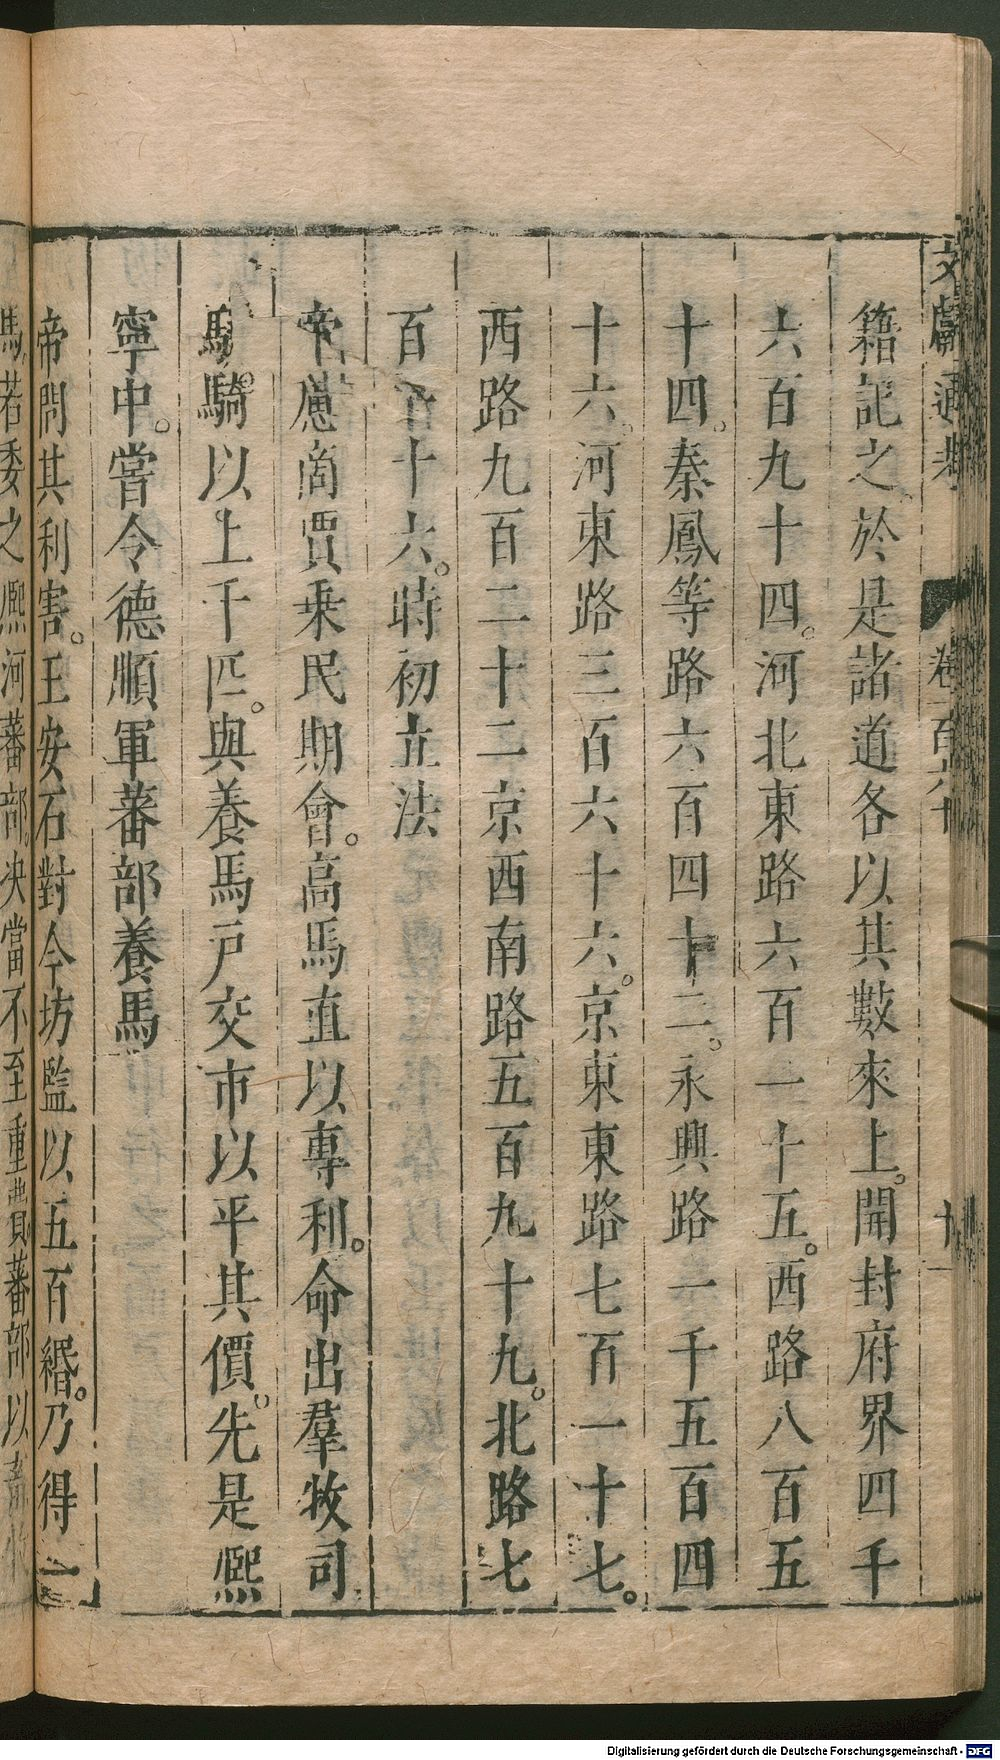 文獻通考
卷一百六十
十一
籍記之於是諸道各以其數來上。開封府界四千
六百九十四。河北東路六百一十五。西路八百五
十四。秦鳳等路六百四十二。永興路一千五百四
十六。河東路三百六十六。京東東路七百一十七。
西路九百二十二京西南路五百九十九。北路七
百一十六。時初立法
帝慮商賈乘民期會。高馬直以專利。命出羣牧司
驍騎以上千匹。與養馬戶交市以平其價。先是熙
寧中。嘗令德順軍蕃部養馬
帝問其利害。王安石對今坊監以五百緡。乃得一
馬若委之熙河蕃部決當不至重費蕃部以
Digitalisierung gefördert durch die Deutsche Forschungsgemeinschaft - DFG